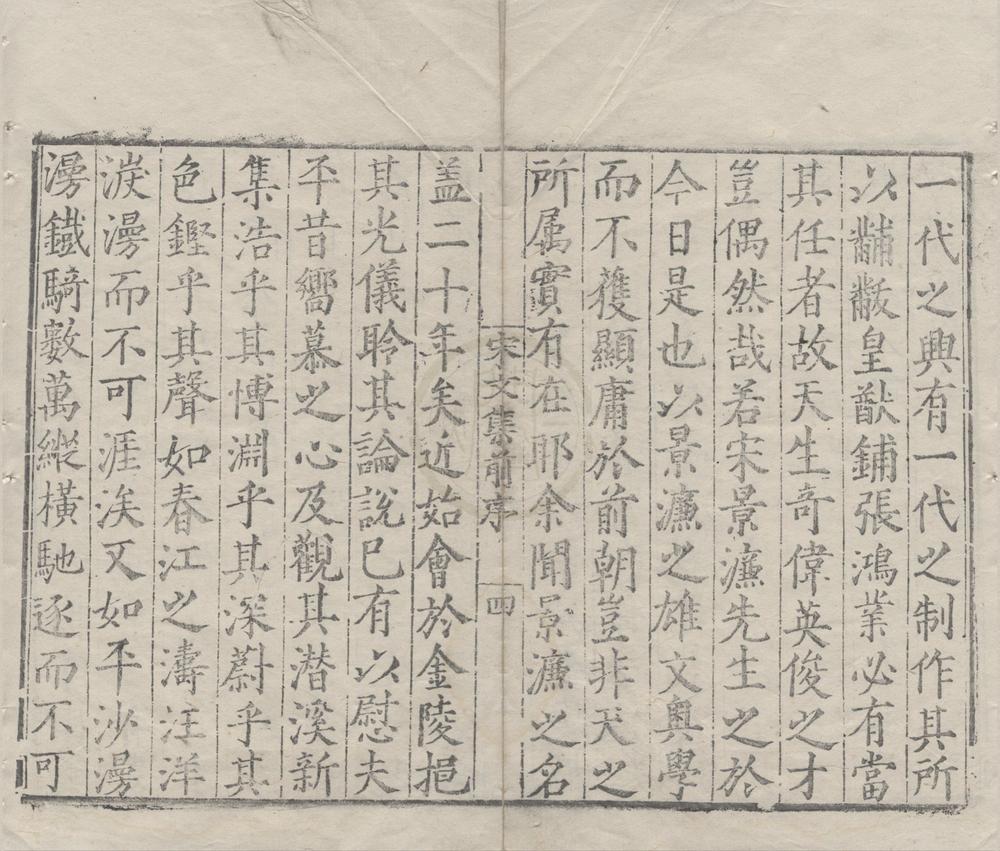 一代之興有一代之制作其所
以黼黻皇猷鋪張鴻業必有當
其任者故天生奇偉英俊之才
豈偶然哉若宋景濂先生之於
今日是也以景濂之雄文奧學
而不獲顯庸於前朝豈非天之
所属實有在耶余聞景濂之名
宋文集前序 四
盖二十年矣近始會於金陵挹
其光儀聆其論說已有以慰夫
平昔嚮慕之心及觀其潜溪新
集浩乎其博淵乎其深蔚乎其
色鏗乎其聲如春江之濤汪洋
淚漫而不可涯涘又如平沙漫
漫鐵騎數萬縱橫馳逐而不可